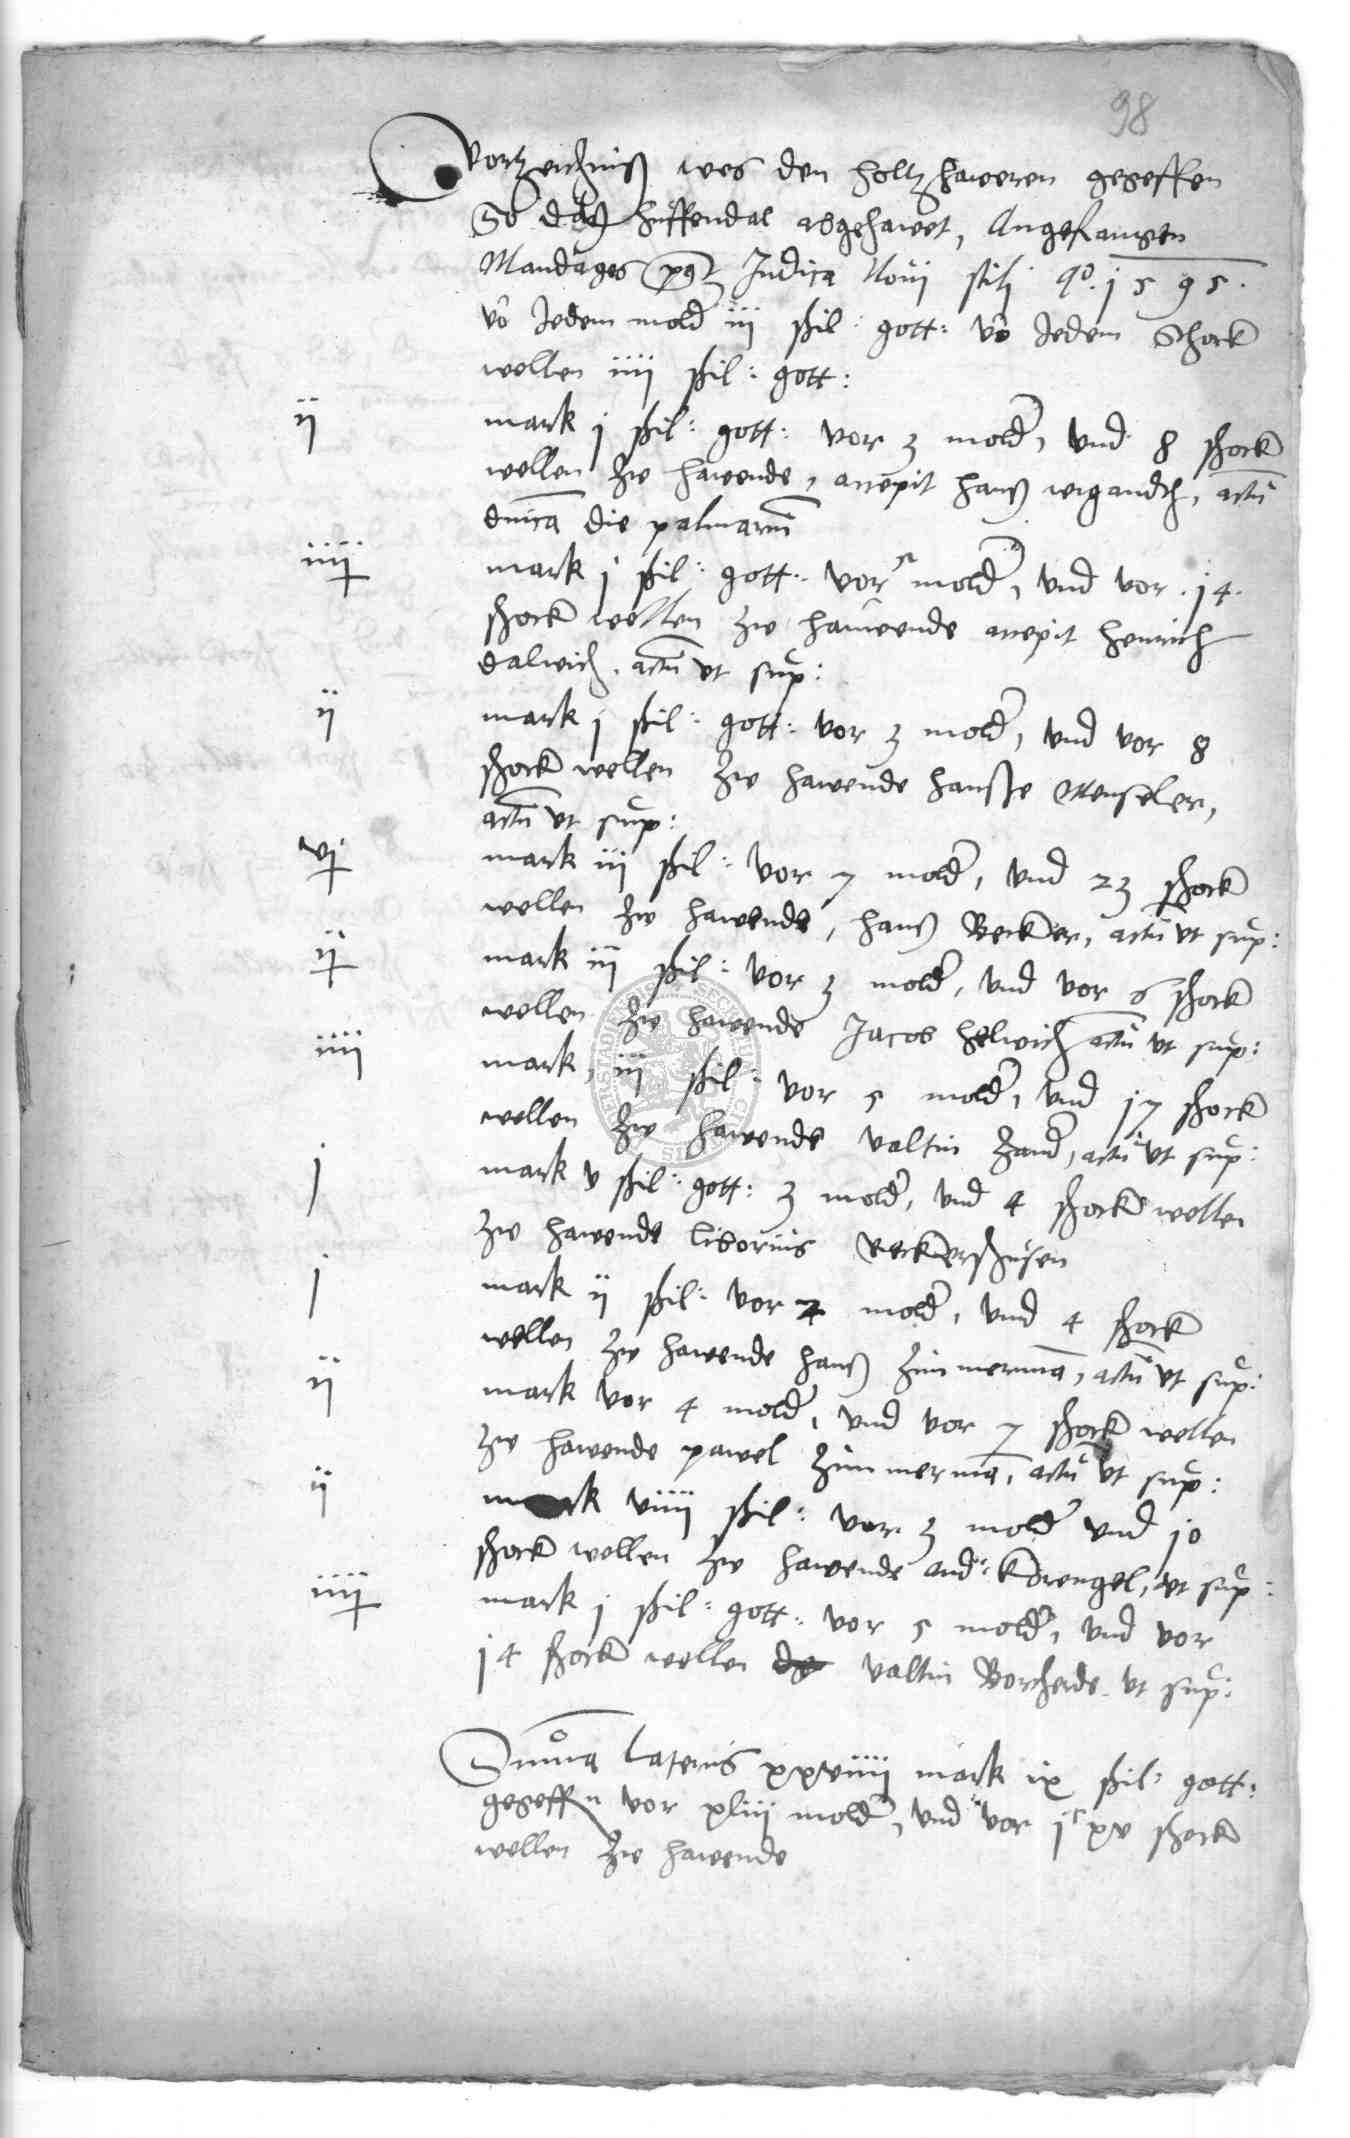 98
Vortzeichniß wes den Holtzhaweren gegeffen
So daß Huffendal abgehawet, Angefangen
Mandages post Judica Noui stili Ao. j595.
vō Jedem mold iij ßil: gott: vō Jedem Schock
wellen iiij ßil: gott:
ij mark j ßil: gott: vor 3 molder, vnd 8 schock
wellen zw hawende, accepit Hanß Wigandch, actū
dnica die palmarū
iiij mark j ßil: gott: vor 5 molder, vnd vor .j4.
schock wellen zw hauwende accepit Henrich
Dalwich. actū vt sup:
ij mark j ßil: gott: vor 3 molder, vnd vor 8
schock wellen zw hawende Hanße Menseler,
actū vt sup:
vj mark iij ßil: vor 7 molder, vnd 23 schock
wellen zw hawende, Hanß Becker, actū vt sup:
ij mark iij ßil: vor 3 molder, vnd vor 6 schock
wellen zw hawende Jacob Helwich actū vt sup:
iiij mark, iij ßil: vor 5 molder, vnd j7 schock
wellen zw hawende Valtin Zander, actū vt sup:
j mark v ßil: gott: 3 molder, vnd 4 schock wellen
zw hawende Liborius Reckershusen
j mark ij ßil: vor 2 molder, vnd 4 schock
wellen zw hawende Hanß Zimmermā, actū vt sup:
ij mark vor 4 molder, vnd vor 7 schock wellen
zw hawende Pawel Zimmermā, actū vt sup:
ij mark viiij ßil: vor 3 molder vnd j0
schock wellen zw hawende And: Krengel, vt sup:
iiij mark j ßil: gott: vor 5 molder, vnd vor
j4 schock wellen Valtin Borcherde vt sup:
Suma Lateris xxxviiij mark ix ßil: gott:
gegeffn vor xliij molder, vnd vor jc xv schock
wellen zw hawende